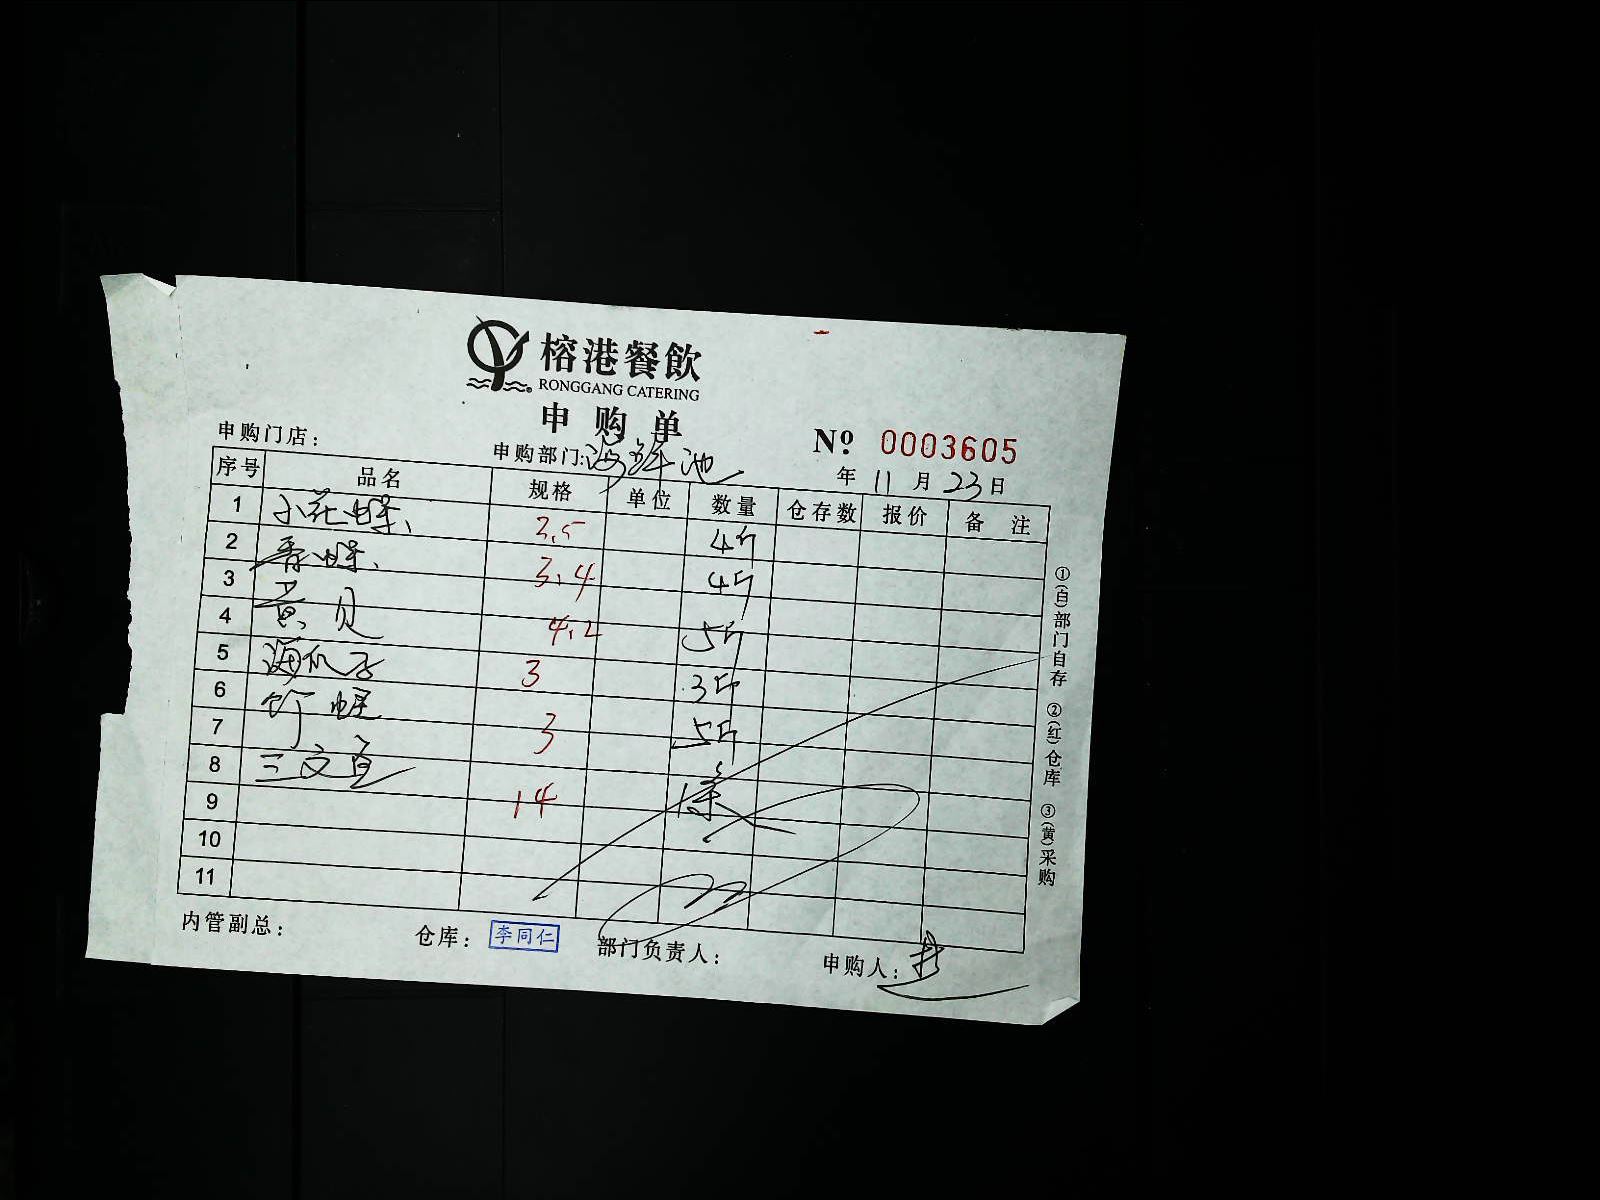 榕港餐飲
RONGGANG CATERING
申购单
申购门店：
申购部门：海鲜池
№ 0003605
年 11 月 23 日
序号 品名 规格 单位 数量 仓存数 报价 备注
1 小花螺、 2.5 4斤
2 香螺、 3.4 4斤
3 黄贝 4.2 5斤
4
5 海瓜子 3 3斤
6 竹蛏 3 5斤
7
8 三文鱼 14 1条
9
10
11
①(白)部门自存 ②(红)仓库 ③(黄)采购
内管副总：
仓库：李同仁
部门负责人：
申购人：